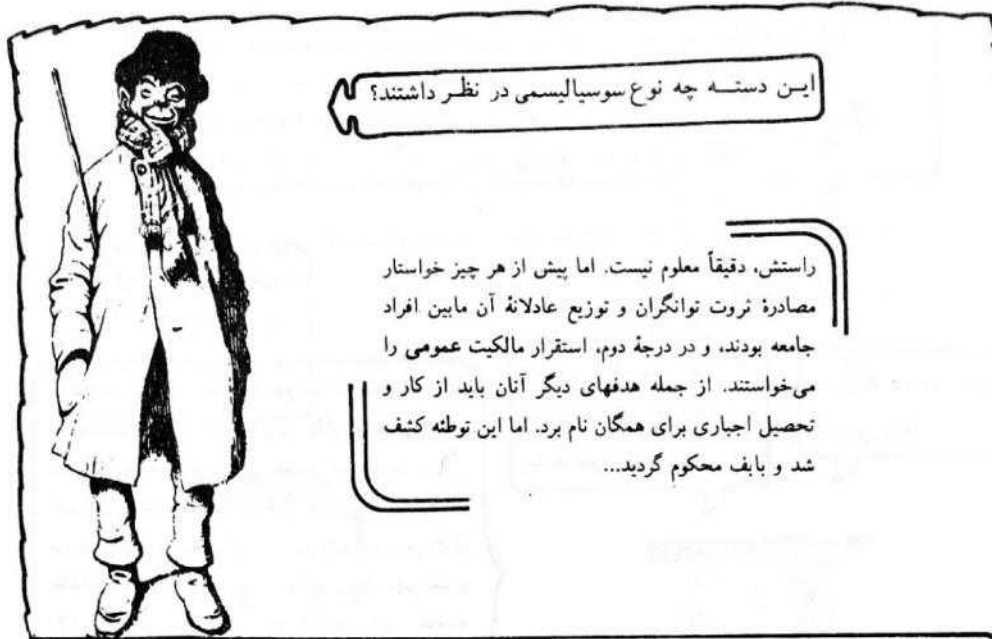 این دسته چه نوع سوسیالیسمی در نظر داشتند؟
راستش، دقیقاً معلوم نیست. اما پیش از هر چیز خواستار
مصادرهٔ ثروت توانگران و توزیع عادلانهٔ آن مابین افراد
جامعه بودند، و در درجهٔ دوم، استقرار مالکیت عمومی را
می‌خواستند. از جمله هدفهای دیگر آنان باید از کار و
تحصیل اجباری برای همگان نام برد. اما این توطئه کشف
شد و بابف محکوم گردید...